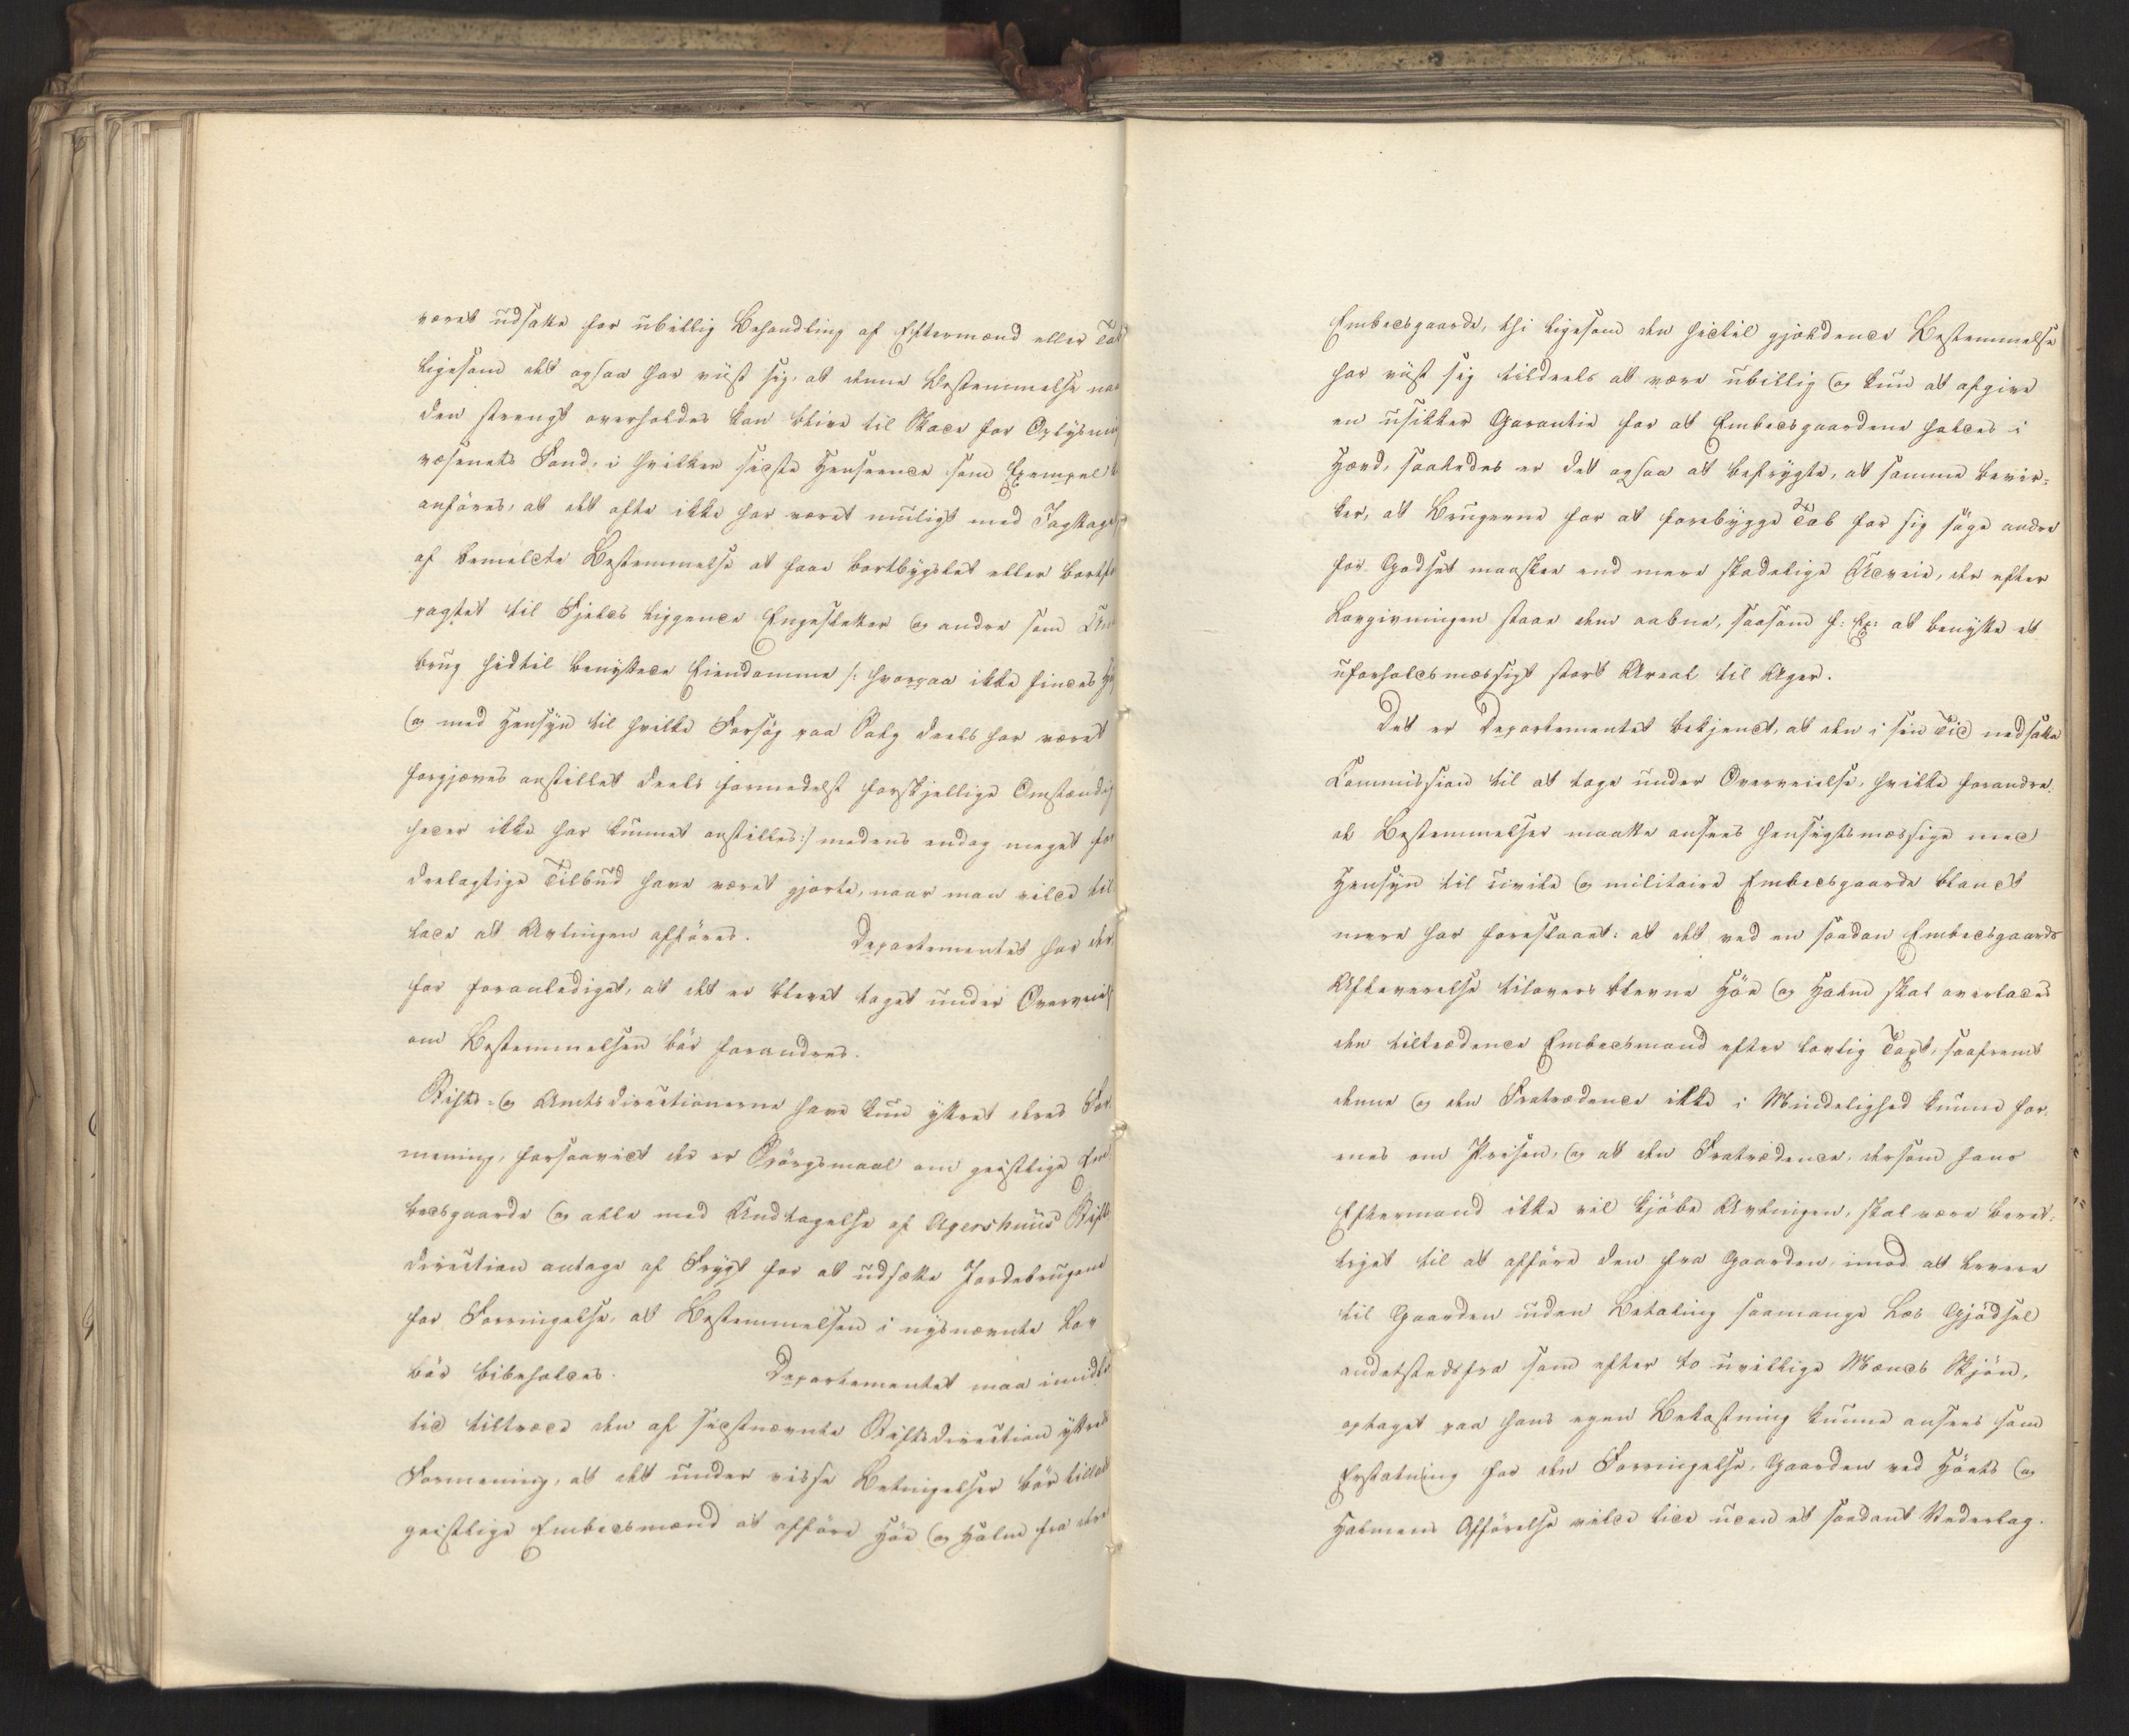 været udsatte for ubillig Behandling af Eftermænd eller Tab
ligesom det ogsaa har viist sig, at denne Bestemmelse naar
den strengt overholdes kan blive til Skade for Oplysnings
væsenets Fond, i hvilken sidste Henseende som Exempel
anföres, at det ofte ikke har været muligt med Iagttagelse
af bemeldte Bestemmelse at faae bortbygslet eller bortfor
pagtet til Fjelds liggende Engesletter og andre som Under
brug hidtil benyttede Eiendomme /: hvorpaa ikke findes
og med Hensyn til hvilke Forsøg paa Salg deels har været
forgjæves anstillet deels formedelst forskjellige Omstændig
heder ikke har kunnet anstilles :/ medens endog meget for
deelagtige Tilbud have været gjorte, naar man vilde til
lade at Avlingen afföres. Departementet har der
for foranlediget, at det er blevet taget under Overveielse
om Bestemmelsen bör forandres.
Stifts- og Amtsdirectionerne have kun yttret deres For
mening, forsaavidt der er Spörgsmaal om geistlige Em
bedsgaarde og alle med Undtagelse af Agershuus Stifts
direction antage af Frygt for at udsætte Jordebrugene
for Forringelse, at Bestemmelsen i nysnævnte Lov
bör bibeholdes. Departementet maa imidler
tid tiltræde den af sidstnævnte Stiftsdirection yttrede
Formening, at det under visse Betingelser bör tillades
geistlige Embedsmænd at afföre Höe og Halm fra deres
Embedsgaarde, thi ligesom den hidtil gjældende Bestemmelse
har viist sig tildeels at være ubillig og kun at afgive
en usikker Garantie for at Embedsgaardene holdes i
Hævd, saaledes er det ogsaa at befrygte, at samme bevir-
ker, at Brugerne for at forebygge Tab for sig söge andre
for Godset maaskee end mere skadelige Udveie, der efter
Lovgivningen staae dem aabne, saasom f: Ex: at benytte et
uforholdsmæssigt stort Areal til Ager.
Det er Departementet bekjendt, at den i sin Tid nedsatte
Commission til at tage under Overveielse, hvilke forandre-
de Bestemmelser maatte ansees hensigtsmæssige med
Hensyn til civile og militaire Embedsgaarde blandt
mere har foreslaaet: at det ved en saadan Embedsgaards
Afleverelse tilovers blevne Höe og Halm skal overlades
den tiltrædende Embedsmand efter lovlig Taxt, saafremt
denne og den Fratrædende ikke i Mindelighed kunne for-
enes om Prisen, og at den Fratrædende, dersom hans
Eftermand ikke vil kjöbe Avlingen, skal være beret-
tiget til at afföre den fra Gaarden, imod at levere
til Gaarden uden Betaling saamange Læs Gjödsel
andetstedsfra som efter to uvillige Mænds Skjön,
optaget paa hans egen Bekostning kunne ansees som
Erstatning for den Forringelse, Gaarden ved Höets og
Halmens Afförelse vilde lide uden et saadant Vederlag.